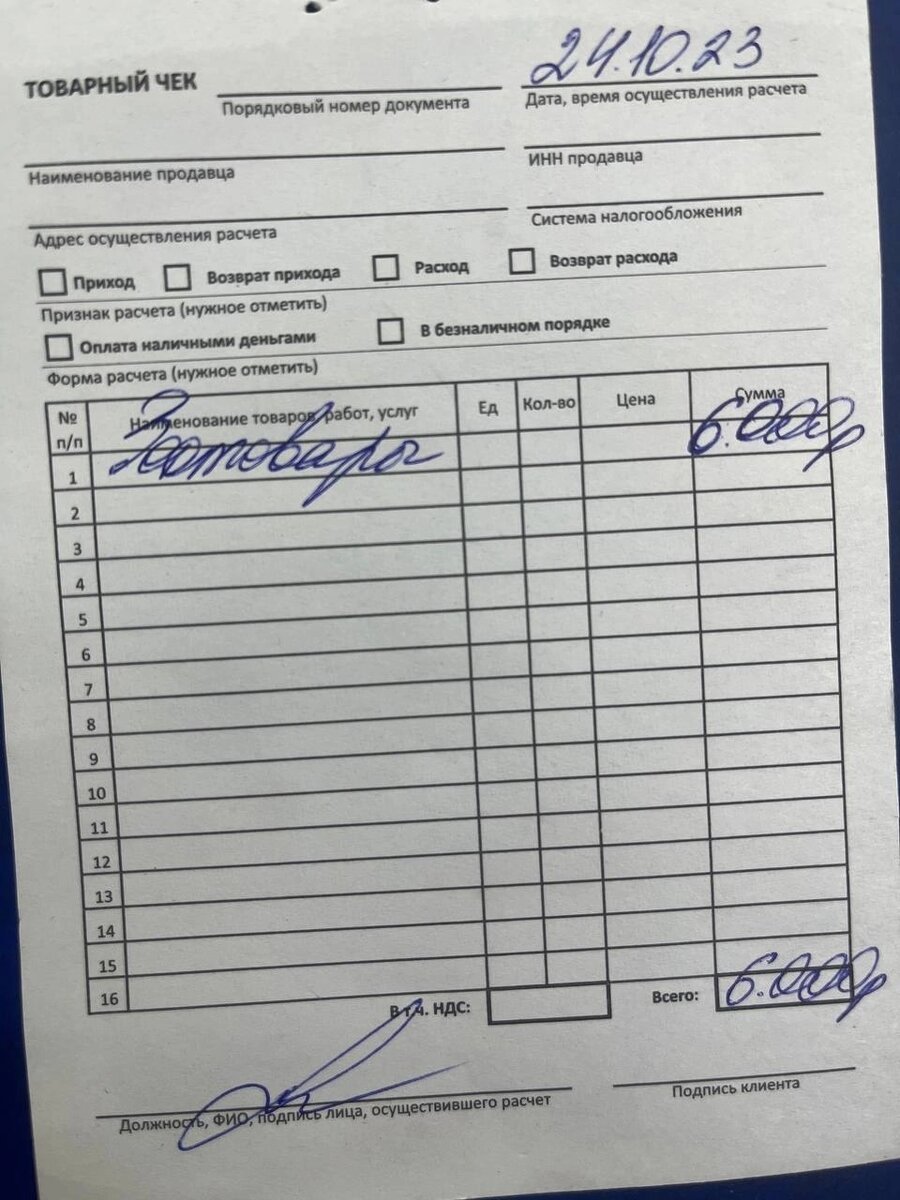 24.10.23
ТОВАРНЫЙ ЧЕК
Порядковый номер документа
Дата, время осуществления расчета
Наименование продавца
ИНН продавца
Адрес осуществления расчета
Система налогообложения
Приход Возврат прихода Расход Возврат расхода
Признак расчета (нужное отметить)
Оплата наличными деньгами В безналичном порядке
Форма расчета (нужное отметить)
№ п/п Наименование товаров, работ, услуг Ед Кол-во Цена Сумма
1 Зоотовары 6.000р
2
3
4
5
6
7
8
9
10
11
12
13
14
15
16
В т.ч. НДС: Всего: 6.000р
Должность, ФИО, подпись лица, осуществившего расчет
Подпись клиента